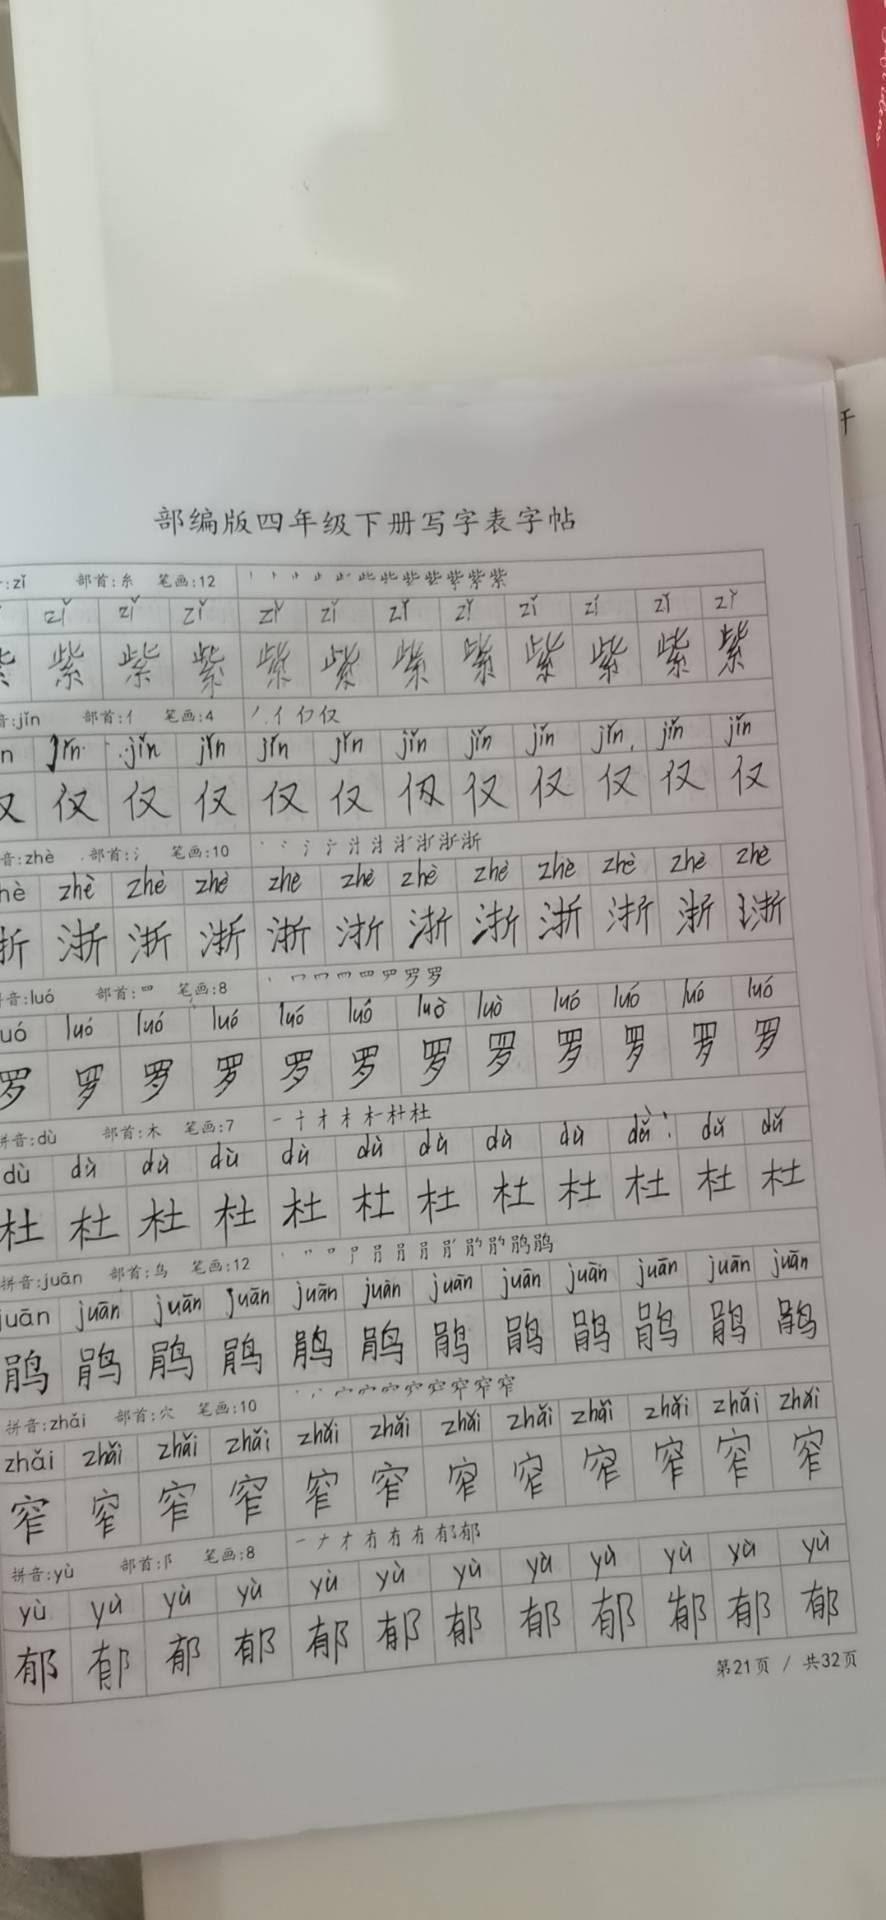 部编版四年级下册写字表字帖
:zǐ 部首:糸 笔画:12
zǐ zǐ zǐ zǐ zǐ zǐ zǐ zǐ zǐ zǐ zǐ
紫 紫 紫 紫 紫 紫 紫 紫 紫 紫 紫 紫
音:jǐn 部首:亻 笔画:4 仅
n jǐn jǐn jǐn jǐn jǐn jǐn jǐn jǐn jǐn jǐn jǐn
仅 仅 仅 仅 仅 仅 仅 仅 仅 仅 仅
音:zhè 部首:氵 笔画:10 浙
hè zhè zhè zhè zhe zhè zhè zhè zhè zhè zhè zhè
折 浙 浙 浙 浙 浙 浙 浙 浙 浙 浙 浙
音:luó 部首:罒 笔画:8 罗
uó luó luó luó luó luó luò luò luó luó luó luó
罗 罗 罗 罗 罗 罗 罗 罗 罗 罗 罗 罗
拼音:dù 部首:木 笔画:7 一 十 才 木 杜
dù dù dù dù dù dù dù dù dù dǔ dǔ dǔ
杜 杜 杜 杜 杜 杜 杜 杜 杜 杜 杜 杜
拼音:juān 部首:鸟 笔画:12 鹃
juān juān juān juān juān juān juān juān juān juān juān juān
鹃 鹃 鹃 鹃 鹃 鹃 鹃 鹃 鹃 鹃 鹃 鹃
拼音:zhǎi 部首:穴 笔画:10 窄
zhǎi zhǎi zhǎi zhǎi zhǎi zhǎi zhǎi zhǎi zhǎi zhǎi zhǎi zhǎi
窄 窄 窄 窄 窄 窄 窄 窄 窄 窄 窄 窄
拼音:yù 部首:阝 笔画:8 郁
yù yù yù yù yù yù yù yù yù yù yù yù
郁 郁 郁 郁 郁 郁 郁 郁 郁 郁 郁 郁
第21页 / 共32页